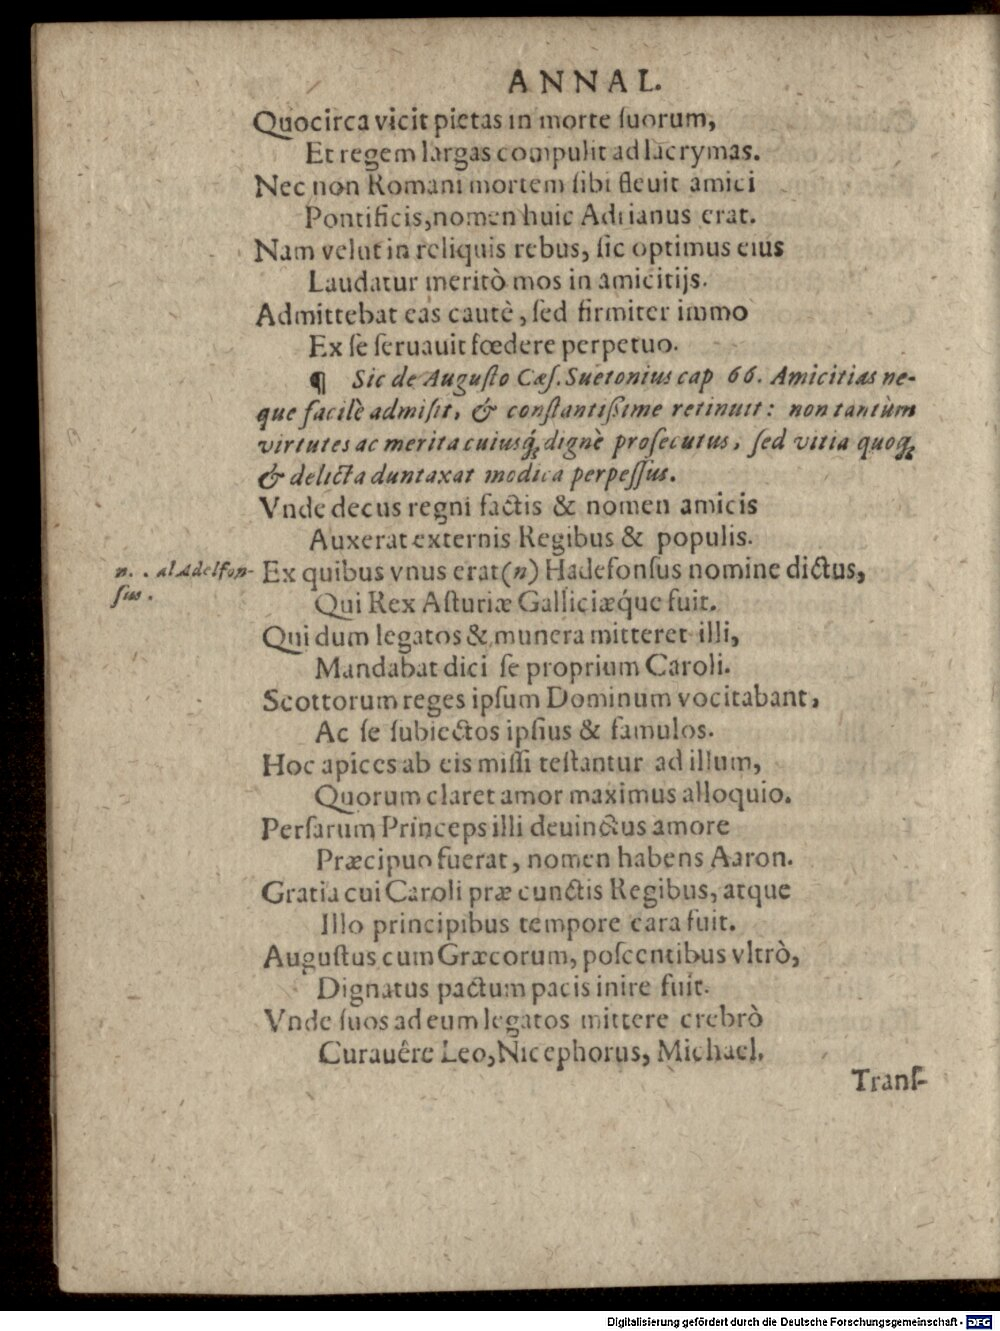 ANNAL.
Quocirca vicit pietas in morte ſuorum,
Et regem largas compulit ad lacrymas.
Nec non Romani mortem ſibi fleuit amici
Pontificis, nomen huic Adrianus erat.
Nam velut in reliquis rebus, ſic optimus eius
Laudatur meritò mos in amicitijs.
Admittebat eas cautè, ſed firmiter immo
Ex ſe ſeruauit fœdere perpetuo.
¶ Sic de Auguſto Cæſ. Suetonius cap 66. Amicitias ne-
que facilè admiſit, & conſtantißime retinuit: non tantùm
virtutes ac merita cuiusq́; dignè proſecutus, ſed vitia quoq;
& delicta duntaxat modica perpeſſus.
Vnde decus regni factis & nomen amicis
Auxerat externis Regibus & populis.
n. . al Adelfon-
ſus.
Ex quibus vnus erat (n) Hadefonſus nomine dictus,
Qui Rex Aſturiæ Galliciæq́ue fuit.
Qui dum legatos & munera mitteret illi,
Mandabat dici ſe proprium Caroli.
Scottorum reges ipſum Dominum vocitabant,
Ac ſe ſubiectos ipſius & famulos.
Hoc apices ab eis miſſi teſtantur ad illum,
Quorum claret amor maximus alloquio.
Perſarum Princeps illi deuinctus amore
Præcipuo fuerat, nomen habens Aaron.
Gratia cui Caroli præ cunctis Regibus, atque
Illo principibus tempore cara fuit.
Auguſtus cum Græcorum, poſcentibus vltrò,
Dignatus pactum pacis inire fuit.
Vnde ſuos ad eum legatos mittere crebrò
Curauêre Leo, Nicephorus, Michael.
Tranſ-
Digitalisierung gefördert durch die Deutsche Forschungsgemeinschaft - DFG